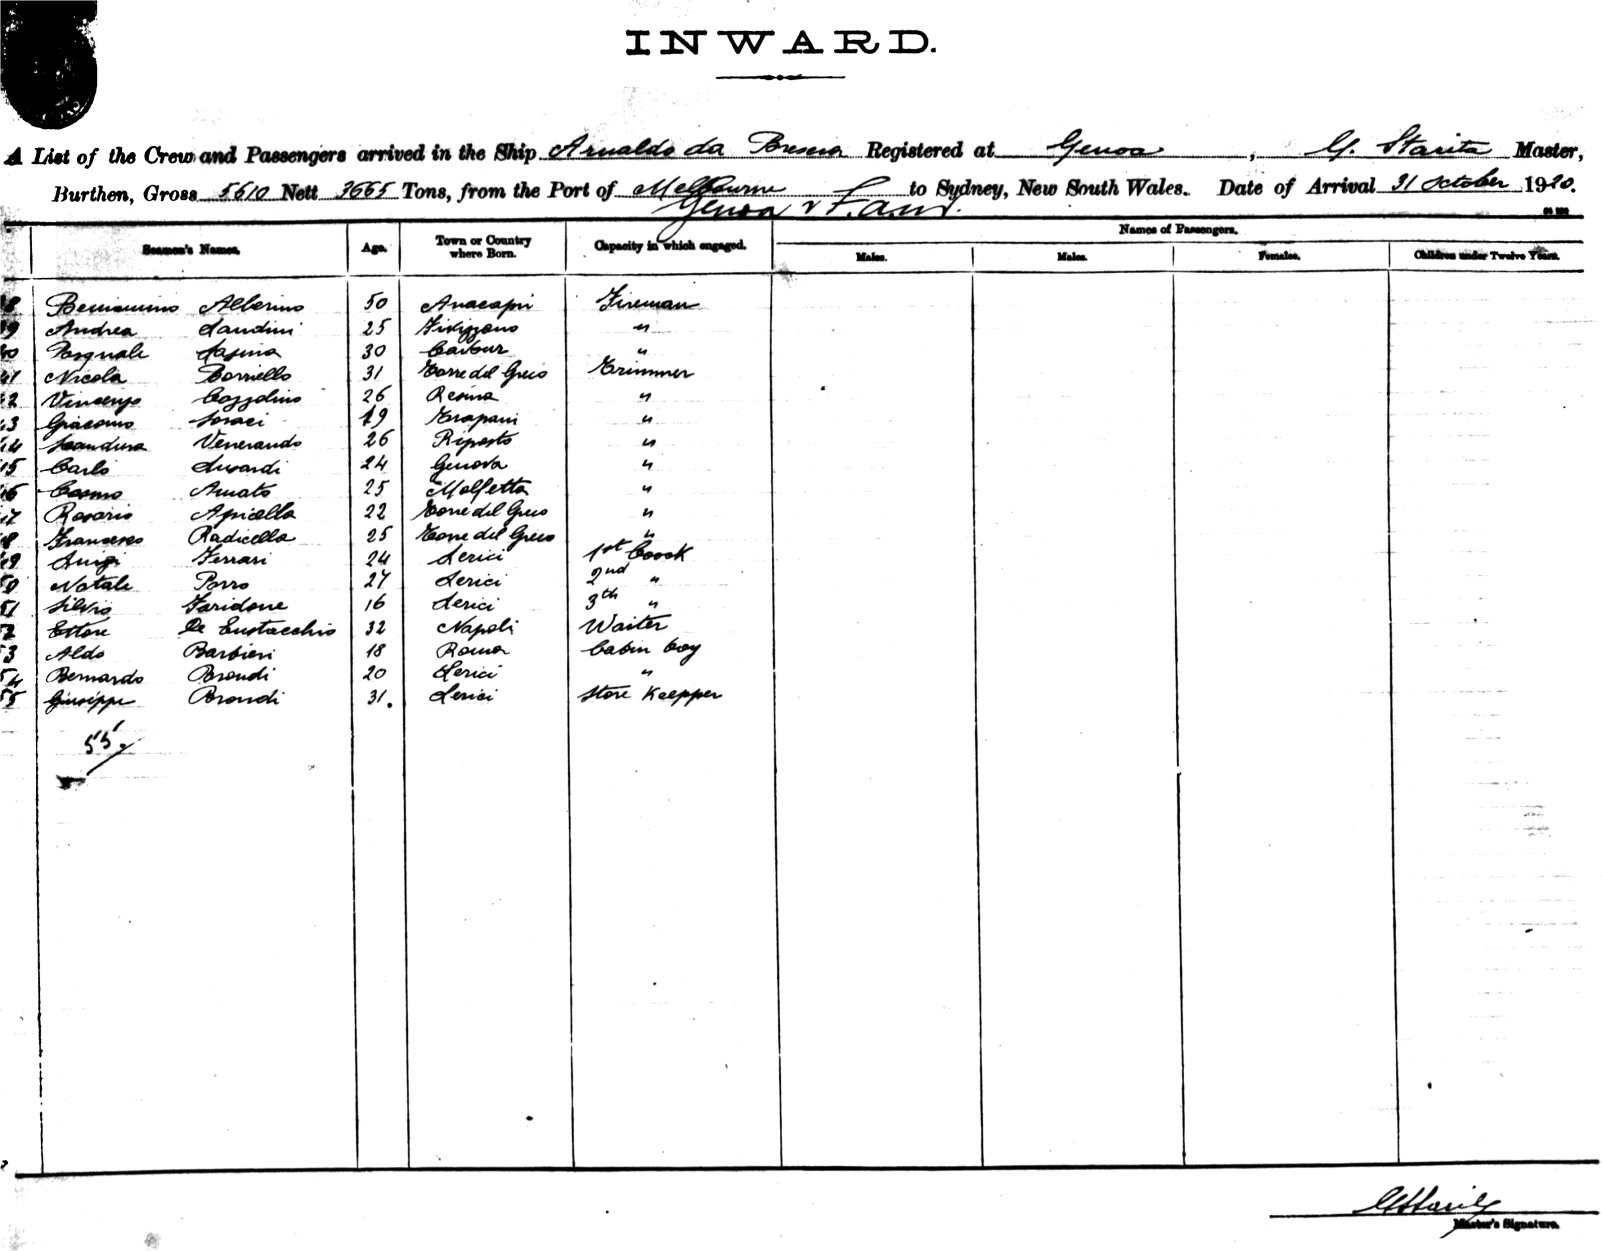 INWARD.
A List of the Crew and Passengers arrived in the Ship Arnaldo da Brescia Registered at Genoa, G. Starita Master,
Burthen, Gross 5610 Nett 3665 Tons, from the Port of Melbourne to Sydney, New South Wales. Date of Arrival 31 October 1920.
Genoa
Seamen's Names. Age. Town or Country where Born. Capacity in which engaged. Names of Passengers.
Males. Males. Females. Children under Twelve Years.
Beniamino Alberino 50 Anacapri Fireman
39 Andrea Landini 25 Fivizzano "
40 Pasquale 30 Cavour "
41 Nicola Borriello 31 Torre del Greco Trimmer
42 Vincenzo Cozzolino 26 Resina "
43 Giacomo 19 Trapani "
44 Scandura Venerando 26 Riposto "
45 Carlo Lusardi 24 Genova "
46 Cosmo Amato 25 Molfetta "
47 Rosario Apicella 22 Torre del Greco "
48 Francesco Radicella 25 Torre del Greco "
49 Luigi Ferrari 24 Lerici 1st Coock
50 Natale Porro 27 Lerici 2nd "
51 Silvio Faridone 16 Lerici 3th "
52 Ettore De Eustacchio 32 Napoli Waiter
53 Aldo Barbieri 18 Roma Cabin boy
54 Bernardo Brondi 20 Lerici "
55 Giuseppe Brondi 31. Lerici Store Keepper
55
Master's Signature.